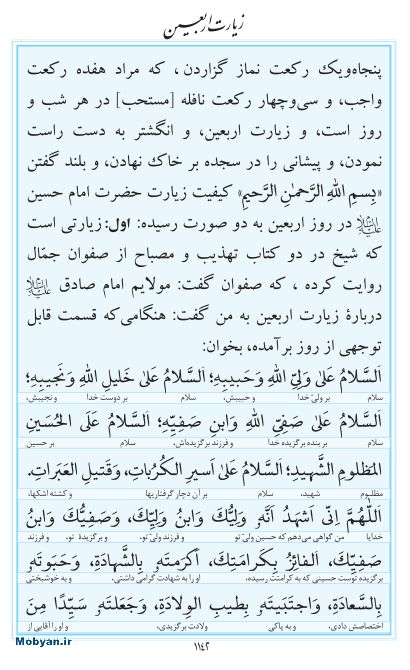 زیارت اربعین
پنجاه‌ویک رکعت نماز گزاردن، که مراد هفده رکعت
واجب، و سی‌وچهار رکعت نافله [مستحب] در هر شب و
روز است، و زیارت اربعین، و انگشتر به دست راست
نمودن، و پیشانی را در سجده بر خاک نهادن، و بلند گفتن
«بِسمِ اللهِ الرَّحمٰنِ الرَّحیمِ» کیفیت زیارت حضرت امام حسین
علیه‌السلام در روز اربعین به دو صورت رسیده: اول: زیارتی است
که شیخ در دو کتاب تهذیب و مصباح از صفوان جمّال
روایت کرده ، که صفوان گفت: مولایم امام صادق علیه‌السلام
دربارهٔ زیارت اربعین به من گفت: هنگامی‌که قسمت قابل
توجهی از روز برآمده، بخوان:
اَلسَّلامُ عَلیٰ وَلِیِّ اللهِ وَحَبیبِهِ؛ اَلسَّلامُ عَلیٰ خَلیلِ اللهِ وَنَجیبِهِ؛
سلام بر ولیّ خدا و حبیبش، سلام بر دوست خدا و نجیبش،
اَلسَّلامُ عَلیٰ صَفِیِّ اللهِ وَابنِ صَفِیِّهِ؛ اَلسَّلامُ عَلَی الحُسَینِ
سلام بر بنده برگزیده خدا و فرزند برگزیده‌اش، سلام بر حسین
المَظلومِ الشَّهیدِ؛ اَلسَّلامُ عَلیٰ اَسیرِ الکُرُباتِ، وَقَتیلِ العَبَراتِ.
مظلوم شهید، سلام بر آن دچار گرفتاریها و کشته اشکها،
اَللّٰهُمَّ اِنّی اَشهَدُ اَنَّهُ وَلِیُّکَ وَابنُ وَلِیِّکَ، وَصَفِیُّکَ وَابنُ
خدایا من گواهی می‌دهم که حسین ولیّ تو و فرزند ولیّ تو، و برگزیدهٔ تو، و فرزند
صَفِیِّکَ، اَلفائِزُ بِکَرامَتِکَ، اَکرَمتَهُ بِالشَّهادَةِ، وَحَبَوتَهُ
برگزیده توست حسینی که به کرامتت رسیده، او را به شهادت گرامی داشتی، و به خوشبختی
بِالسَّعادَةِ، وَاجتَبَیتَهُ بِطیبِ الوِلادَةِ، وَجَعَلتَهُ سَیِّدًا مِنَ
اختصاصش دادی، و به پاکی ولادت برگزیدی، و او را آقایی از
۱۱۴۲
Mobyan.ir